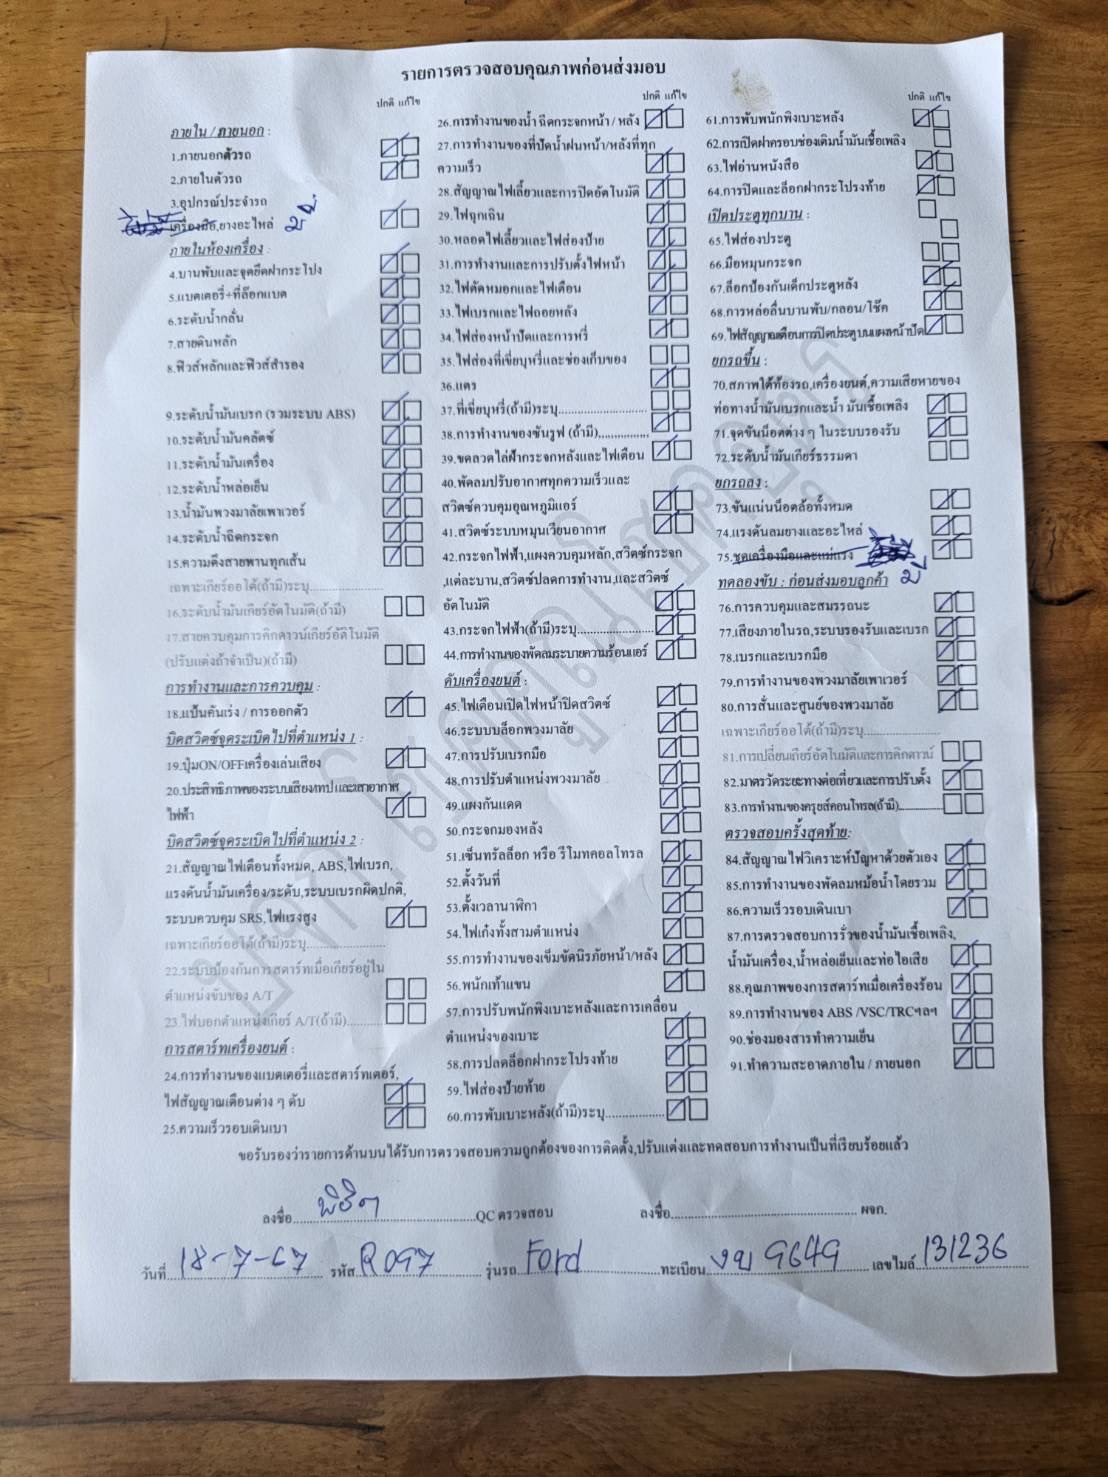 รายการตรวจสอบคุณภาพก่อนส่งมอบ
ปกติ แก้ไข
ภายใน / ภายนอก :
1.ภายนอกตัวรถ
2.ภายในตัวรถ
3.อุปกรณ์ประจำรถ
เครื่องมือ,ยางอะไหล่ มี
ภายในห้องเครื่อง :
4.บานพับและจุดยึดฝากระโปง
5.แบตเตอรี่+ที่ล๊อกแบต
6.ระดับน้ำกลั่น
7.สายดินหลัก
8.ฟิวส์หลักและฟิวส์สำรอง
9.ระดับน้ำมันเบรก (รวมระบบ ABS)
10.ระดับน้ำมันคลัตซ์
11.ระดับน้ำมันเครื่อง
12.ระดับน้ำหล่อเย็น
13.น้ำมันพวงมาลัยเพาเวอร์
14.ระดับน้ำฉีดกระจก
15.ความตึงสายพานทุกเส้น
เฉพาะเกียร์ออโต้(ถ้ามี)ระบุ....................
16.ระดับน้ำมันเกียร์อัตโนมัติ(ถ้ามี)
17.สายควบคุมการคิกดาวน์เกียร์อัติโนมัติ
(ปรับแต่งถ้าจำเป็น)(ถ้ามี)
การทำงานและการควบคุม :
18.แป้นคันเร่ง / การออกตัว
บิดสวิตซ์จุดระเบิดไปที่ตำแหน่ง 1 :
19.ปุ่มON/OFFเครื่องเล่นเสียง
20.ประสิทธิภาพของระบบเสียง/เทป และเสาอากาศ
ไฟฟ้า
บิดสวิตซ์จุดระเบิดไปที่ตำแหน่ง 2 :
21.สัญญาณไฟเตือนทั้งหมด, ABS,ไฟเบรก,
แรงดันน้ำมันเครื่อง/ระดับ,ระบบเบรกผิดปกติ,
ระบบควบคุม SRS,ไฟแรงสูง
เฉพาะเกียร์ออโต้(ถ้ามี)ระบุ....................
22.ระบบป้องกันการสตาร์ทเมื่อเกียร์อยู่ใน
ตำแหน่งขับของ A/T
23.ไฟบอกตำแหน่งเกียร์ A/T(ถ้ามี)..........
การสตาร์ทเครื่องยนต์ :
24.การทำงานของแบตเตอรี่และสตาร์ทเตอร์,
ไฟสัญญาณเตือนต่าง ๆ ดับ
25.ความเร็วรอบเดินเบา
ปกติ แก้ไข
26.การทำงานของน้ำ ฉีดกระจกหน้า / หลัง
27.การทำงานของที่ปัดน้ำฝนหน้า/หลังที่ทุก
ความเร็ว
28.สัญญาณไฟเลี้ยวและการปิดอัตโนมัติ
29.ไฟฉุกเฉิน
30.หลอดไฟเลี้ยวและไฟส่องป้าย
31.การทำงานและการปรับตั้งไฟหน้า
32.ไฟตัดหมอกและไฟเตือน
33.ไฟเบรกและไฟถอยหลัง
34.ไฟส่องหน้าปัดและการหรี่
35.ไฟส่องที่เขี่ยบุหรี่และช่องเก็บของ
36.แตร
37.ที่เขี่ยบุหรี่(ถ้ามี)ระบุ....................
38.การทำงานของซันรูฟ (ถ้ามี)...............
39.ขดลวดไล่ฝ้ากระจกหลังและไฟเตือน
40.พัดลมปรับอากาศทุกความเร็วและ
สวิตซ์ควบคุมอุณหภูมิแอร์
41.สวิตซ์ระบบหมุนเวียนอากาศ
42.กระจกไฟฟ้า,แผงควบคุมหลัก,สวิตซ์กระจก
,แต่ละบาน,สวิตซ์ปลดการทำงาน,และสวิตซ์
อัตโนมัติ
43.กระจกไฟฟ้า(ถ้ามี)ระบุ....................
44.การทำงานของพัดลมระบายความร้อนแอร์
ดับเครื่องยนต์ :
45.ไฟเตือนเปิดไฟหน้าปิดสวิตซ์
46.ระบบบล็อกพวงมาลัย
47.การปรับเบรกมือ
48.การปรับตำแหน่งพวงมาลัย
49.แผงกันแดด
50.กระจกมองหลัง
51.เซ็นทรัลล็อก หรือ รีโมทคอลโทรล
52.ตั้งวันที่
53.ตั้งเวลานาฬิกา
54.ไฟเก๋งทั้งสามตำแหน่ง
55.การทำงานของเข็มขัดนิรภัยหน้า/หลัง
56.พนักเท้าแขน
57.การปรับพนักพิงเบาะหลังและการเคลื่อน
ตำแหน่งของเบาะ
58.การปลดล็อกฝากระโปรงท้าย
59.ไฟส่องป้ายท้าย
60.การพับเบาะหลัง(ถ้ามี)ระบุ...............
ปกติ แก้ไข
61.การพับพนักพิงเบาะหลัง
62.การเปิดฝาครอบช่องเติมน้ำมันเชื้อเพลิง
63.ไฟอ่านหนังสือ
64.การปิดและล็อกฝากระโปรงท้าย
เปิดประตูทุกบาน :
65.ไฟส่องประตู
66.มือหมุนกระจก
67.ล็อกป้องกันเด็กประตูหลัง
68.การหล่อลื่นบานพับ/กลอน/โช๊ค
69.ไฟสัญญาณเตือนการปิดประตูบนแผงหน้าปัด
ยกรถขึ้น :
70.สภาพใต้ท้องรถ,เครื่องยนต์,ความเสียหายของ
ท่อทางน้ำมันเบรกและน้ำ มันเชื้อเพลิง
71.จุดขันน็อตต่าง ๆ ในระบบรองรับ
72.ระดับน้ำมันเกียร์ธรรมดา
ยกรถลง :
73.ขันแน่นน็อตล้อทั้งหมด
74.แรงดันลมยางและอะไหล่
75.ชุดเครื่องมือและแม่แรง
ทดลองขับ : ก่อนส่งมอบลูกค้า มี
76.การควบคุมและสมรรถนะ
77.เสียงภายในรถ,ระบบรองรับและเบรก
78.เบรกและเบรกมือ
79.การทำงานของพวงมาลัยเพาเวอร์
80.การสั่นและศูนย์ของพวงมาลัย
เฉพาะเกียร์ออโต้(ถ้ามี)ระบุ....................
81.การเปลี่ยนเกียร์อัตโนมัติและการคิกดาวน์
82.มาตรวัดระยะทางต่อเที่ยวและการปรับตั้ง
83.การทำงานของครุยส์คอนโทรล(ถ้ามี)..........
ตรวจสอบครั้งสุดท้าย:
84.สัญญาณไฟวิเคราะห์ปัญหาด้วยตัวเอง
85.การทำงานของพัดลมหม้อน้ำโดยรวม
86.ความเร็วรอบเดินเบา
87.การตรวจสอบการรั่วของน้ำมันเชื้อเพลิง,
น้ำมันเครื่อง,น้ำหล่อเย็นและท่อไอเสีย
88.คุณภาพของการสตาร์ทเมื่อเครื่องร้อน
89.การทำงานของ ABS /VSC/TRCฯลฯ
90.ช่องมองสารทำความเย็น
91.ทำความสะอาดภายใน / ภายนอก
ขอรับรองว่ารายการด้านบนได้รับการตรวจสอบความถูกต้องของการติดตั้ง,ปรับแต่งและทดสอบการทำงานเป็นที่เรียบร้อยแล้ว
ลงชื่อ....................QC ตรวจสอบ ลงชื่อ.................... ผจก.
วันที่ 18-7-67 รหัส R097 รุ่นรถ Ford ทะเบียน งบ 9649 เลขไมล์ 131236